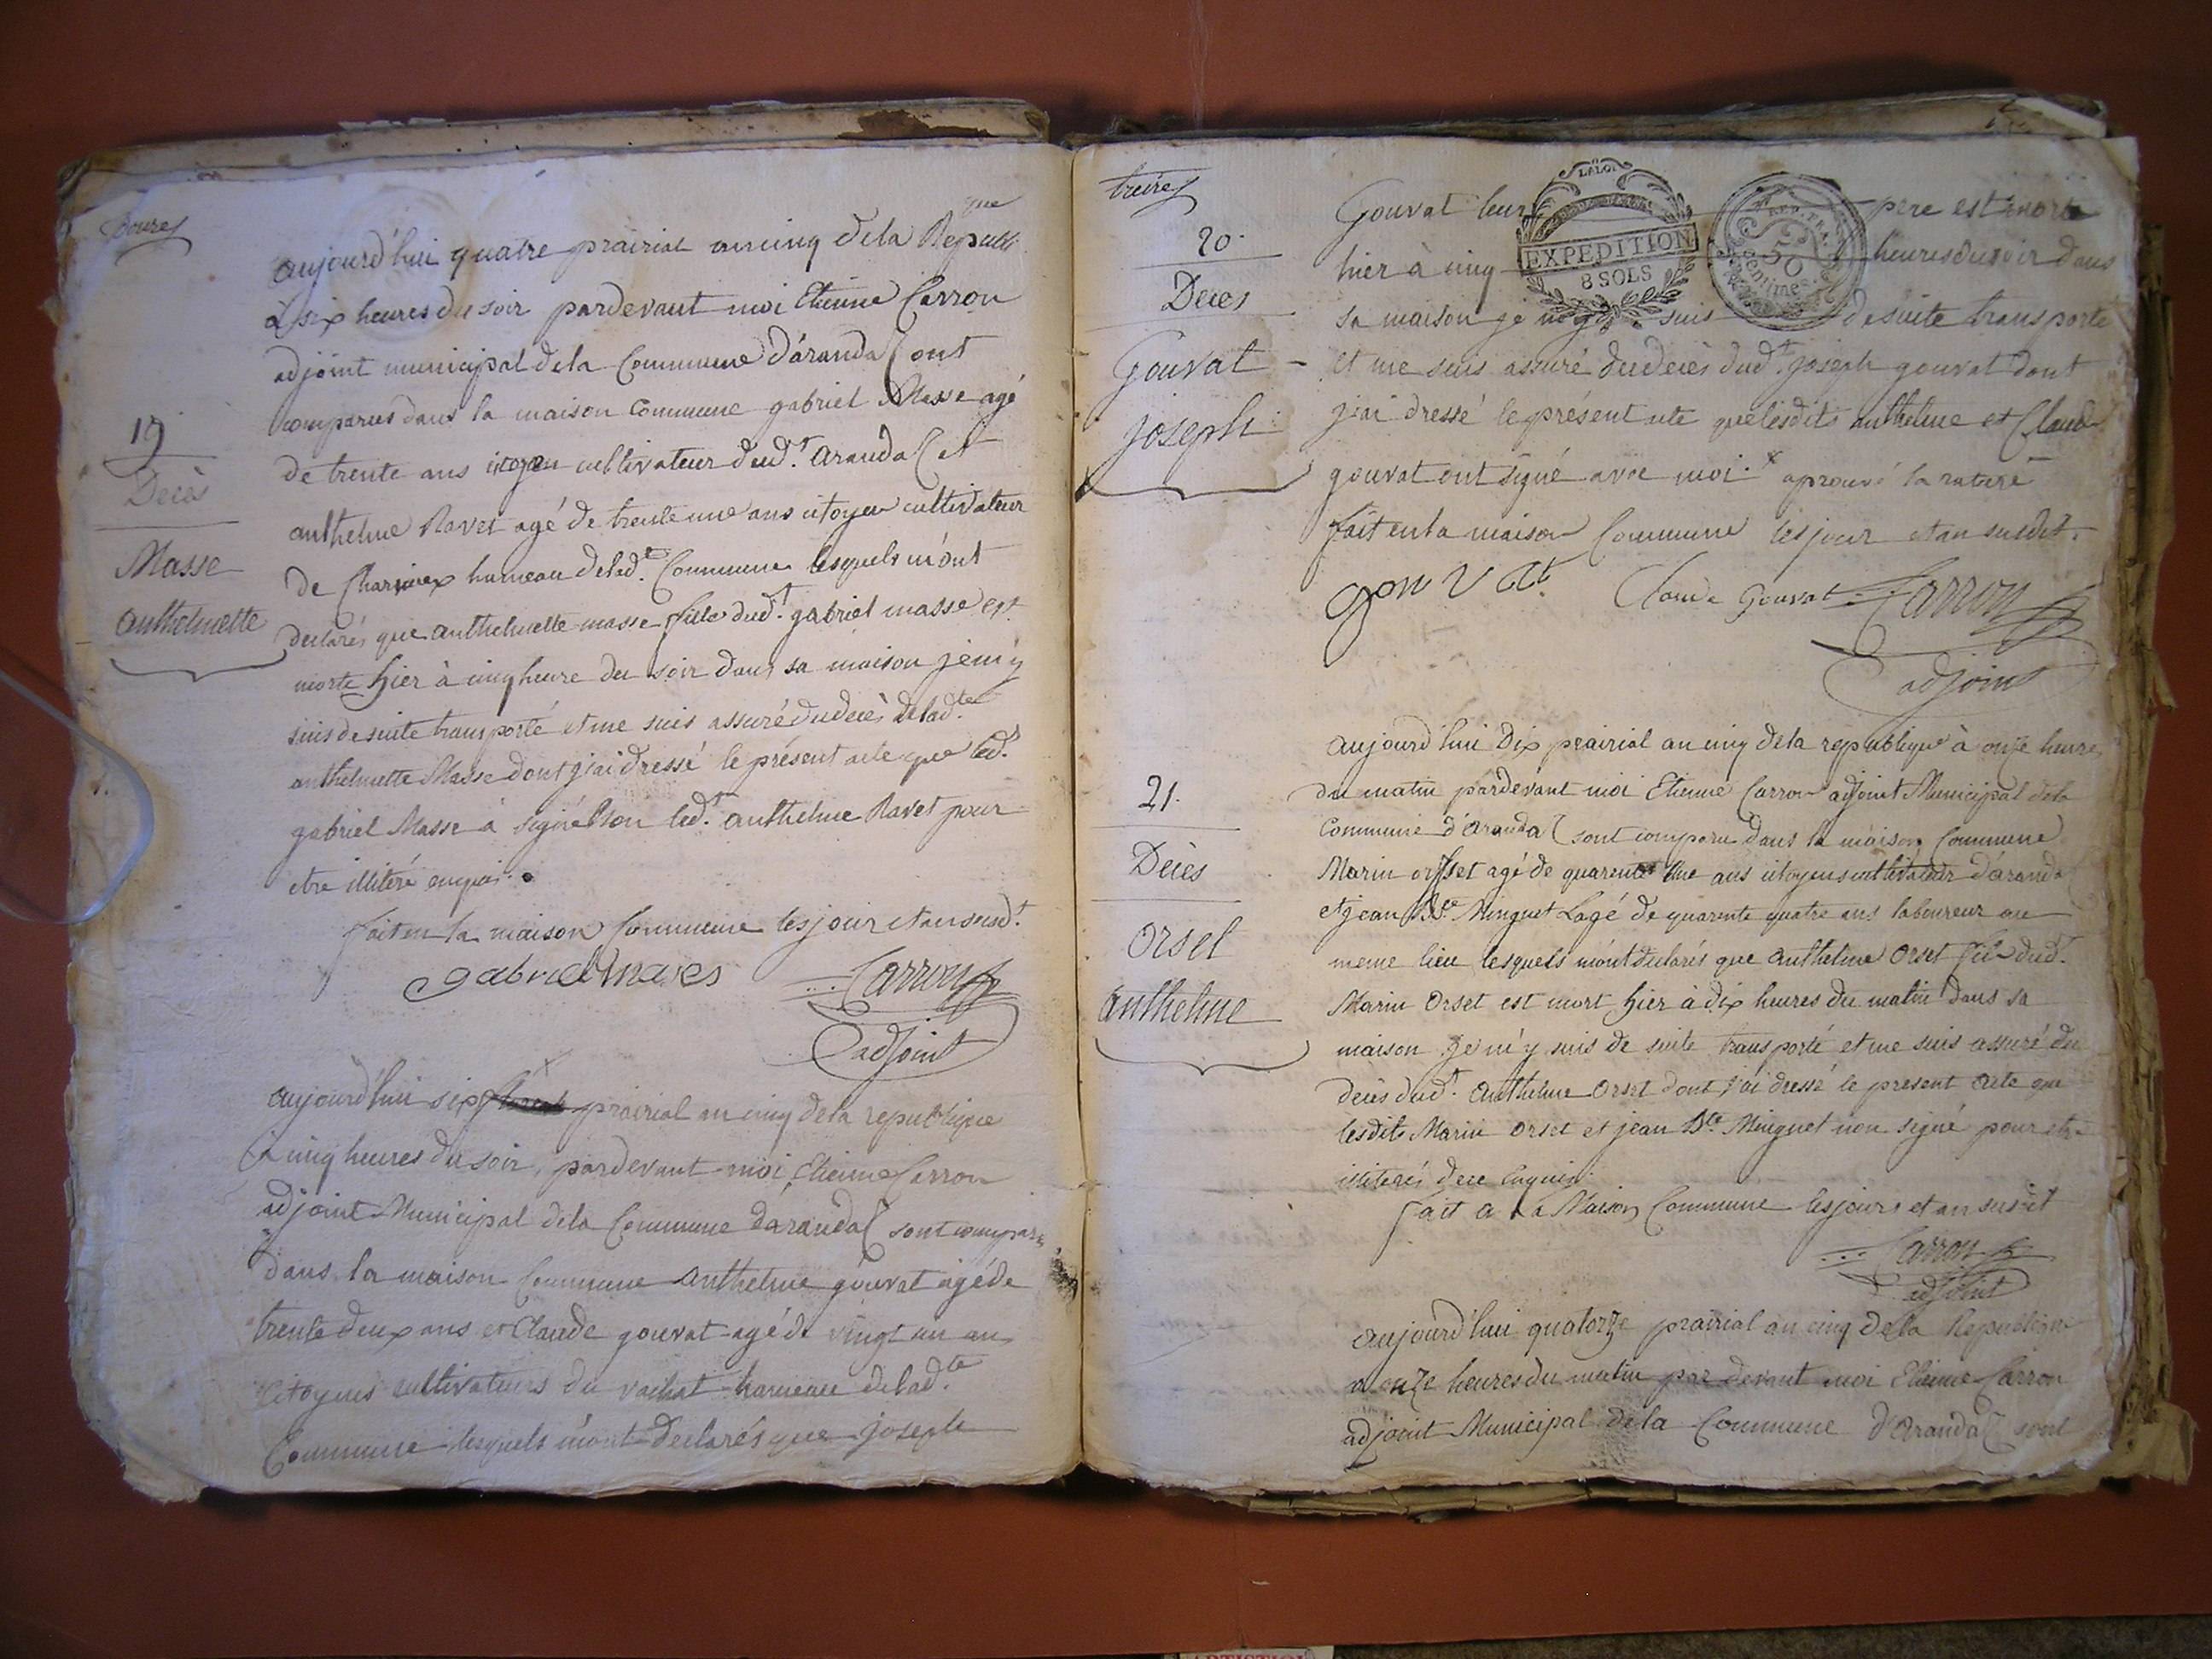 Douze
aujourd'hui quatre prairial an cinq de la Republique
à six heures du soir pardevant moi Etienne Carron
adjoint municipal de la Commune d'aranda ont
comparus dans la maison commune gabriel Masse agé
de trente ans citoyen cultivateur dud.t aranda et
anthelme Ravet agé de trente une ans citoyen cultivateur
de hameau de lad.te Commune lesquels m'ont
declarés que anthelmette masse fille dud.t gabriel masse est
morte hier à cinq heure du soir dans sa maison je m'y
suis de suite transporté et me suis assuré du decès de lad.te
anthelmette Masse dont j'ai dressé le présent acte que led.t
gabriel Masse à signé Non led.t anthelme Ravet pour
etre illitéré enquis.
fait en la maison Commune les jour et an susd.t
gabriel mases Carron
adjoint
19
Decès
Masse
anthelmette
aujourd'hui six prairial an cinq de la republique
à cinq heures du soir, pardevant moi Etienne Carron
adjoint Municipal de la Commune d'aranda sont comparu
dans la maison Commune anthelme gouvat agé de
trente deux ans et Claude gouvat agé de vingt un ans
Citoyens cultivateurs du vachat hameau de lad.te
Commune lesquels m'ont declarés que joseph
treize
20.
Deces
Gouvat
joseph
Gouvat leur père est morte
hier à cinq heures du soir dans
sa maison je m'y suis de suite transporte
et me suis assuré du decès dud.t joseph gouvat dont
j'ai dressé le présent acte que lesdits anthelme et Claude
gouvat ont signé avec moi. x aprouvé la rature
fait en la maison Commune les jour et an susdit.
LA LOI
EXPEDITION
8 SOLS
REP. FRA.
50
centimes
gouvat Claude Gouvat Carron
adjoint
21.
Deces
Orset
anthelme
aujourd'hui Dix prairial an cinq de la republique à onze heures
du matin pardevant moi Etienne Carron adjoint Municipal de la
Commune d'Aranda sont comparu dans la maison Commune
Marin orsset agé de quarente une ans citoyens cultivateur d'aranda
et jean B.te Minguet agé de quarente quatre ans laboureur au
meme lieu lesquels m'ont declarés que anthelme Orset fils dud.t
Marin Orset est mort hier à dix heures du matin dans sa
maison je m'y suis de suite transporté et me suis assuré du
decès dud.t anthelme Orset dont j'ai dressé le present acte que
lesdits Marin Orset et jean B.te Minguet non signé pour etre
illiterés de ce enquis.
fait a la Maison Commune les jours et an susdit
Carron
adjoint
aujourd'hui quatorze prairial an cinq de la Republique
a onze heures du matin par devant moi Etienne Carron
adjoint Municipal de la Commune d'Aranda sont